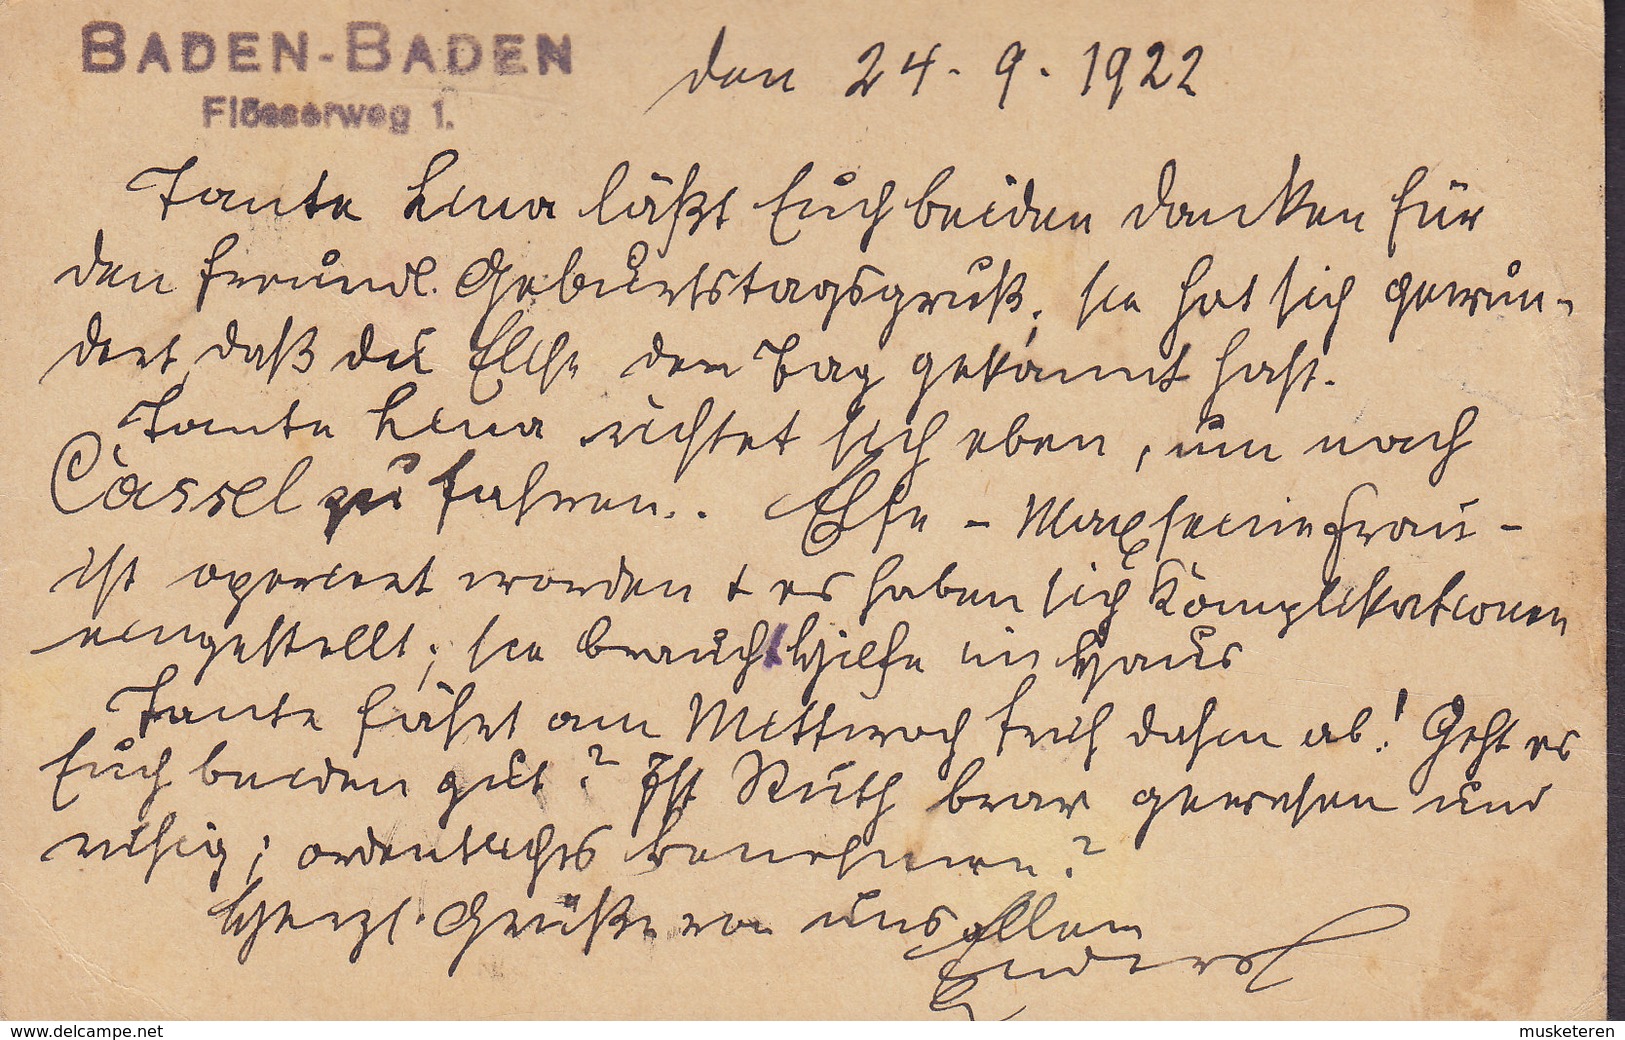 BADEN-BADEN
Flösserweg 1.
den 24. 9. 1922
Tante Lina läßt Euch beiden danken für
den freundl. Geburtstagsgruß; sie hat sich gewun-
dert, daß du Else den Tag gekannt hast.
Tante Lina richtet sich eben, um nach
Cassel zu fahren.. Else - Max seine Frau -
ist operiert worden + es haben sich Komplikationen
eingestellt; sie braucht Hilfe im Haus
Tante fährt am Mittwoch früh dahin ab! Geht es
Euch beiden gut? Ist Ruth brav gewesen und
ruhig; ordentliches benehmen?
Herzl. Grüße von uns allen
www.delcampe.net
musketeren